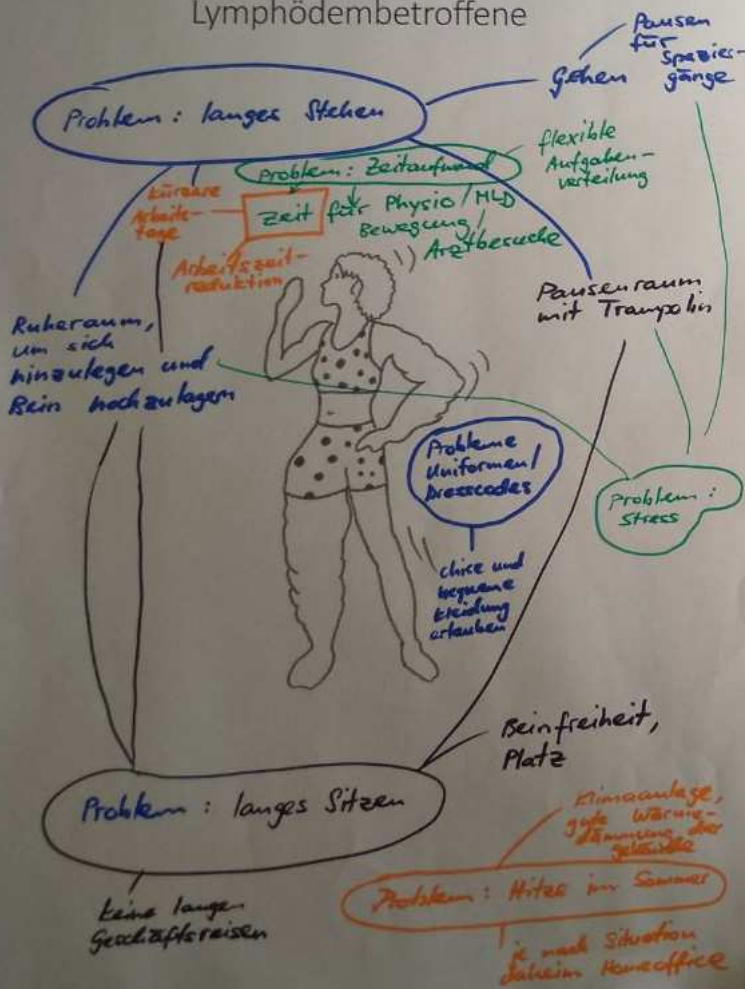 Lymphödembetroffene
Pausen
für
Spazier-
gänge
Gehen
Problem: langes Stehen
Problem: Zeitaufwand
flexible
Aufgaben-
verteilung
kürzere
Arbeits-
tage
Zeit für Physio/MLD
Bewegung/
Arztbesuche
Arbeitszeit-
reduktion
Pausenraum
mit Trampolin
Ruheraum,
um sich
hinzulegen und
Bein hochzulagern
Probleme
Uniformen/
Dresscodes
Problem:
Stress
chice und
bequeme
Kleidung
erlauben
Beinfreiheit,
Platz
Problem: langes Sitzen
keine langen
Geschäftsreisen
Klimaanlage,
gute Wärme-
dämmung der
Gebäude
Problem: Hitze im Sommer
je nach Situation
daheim Homeoffice